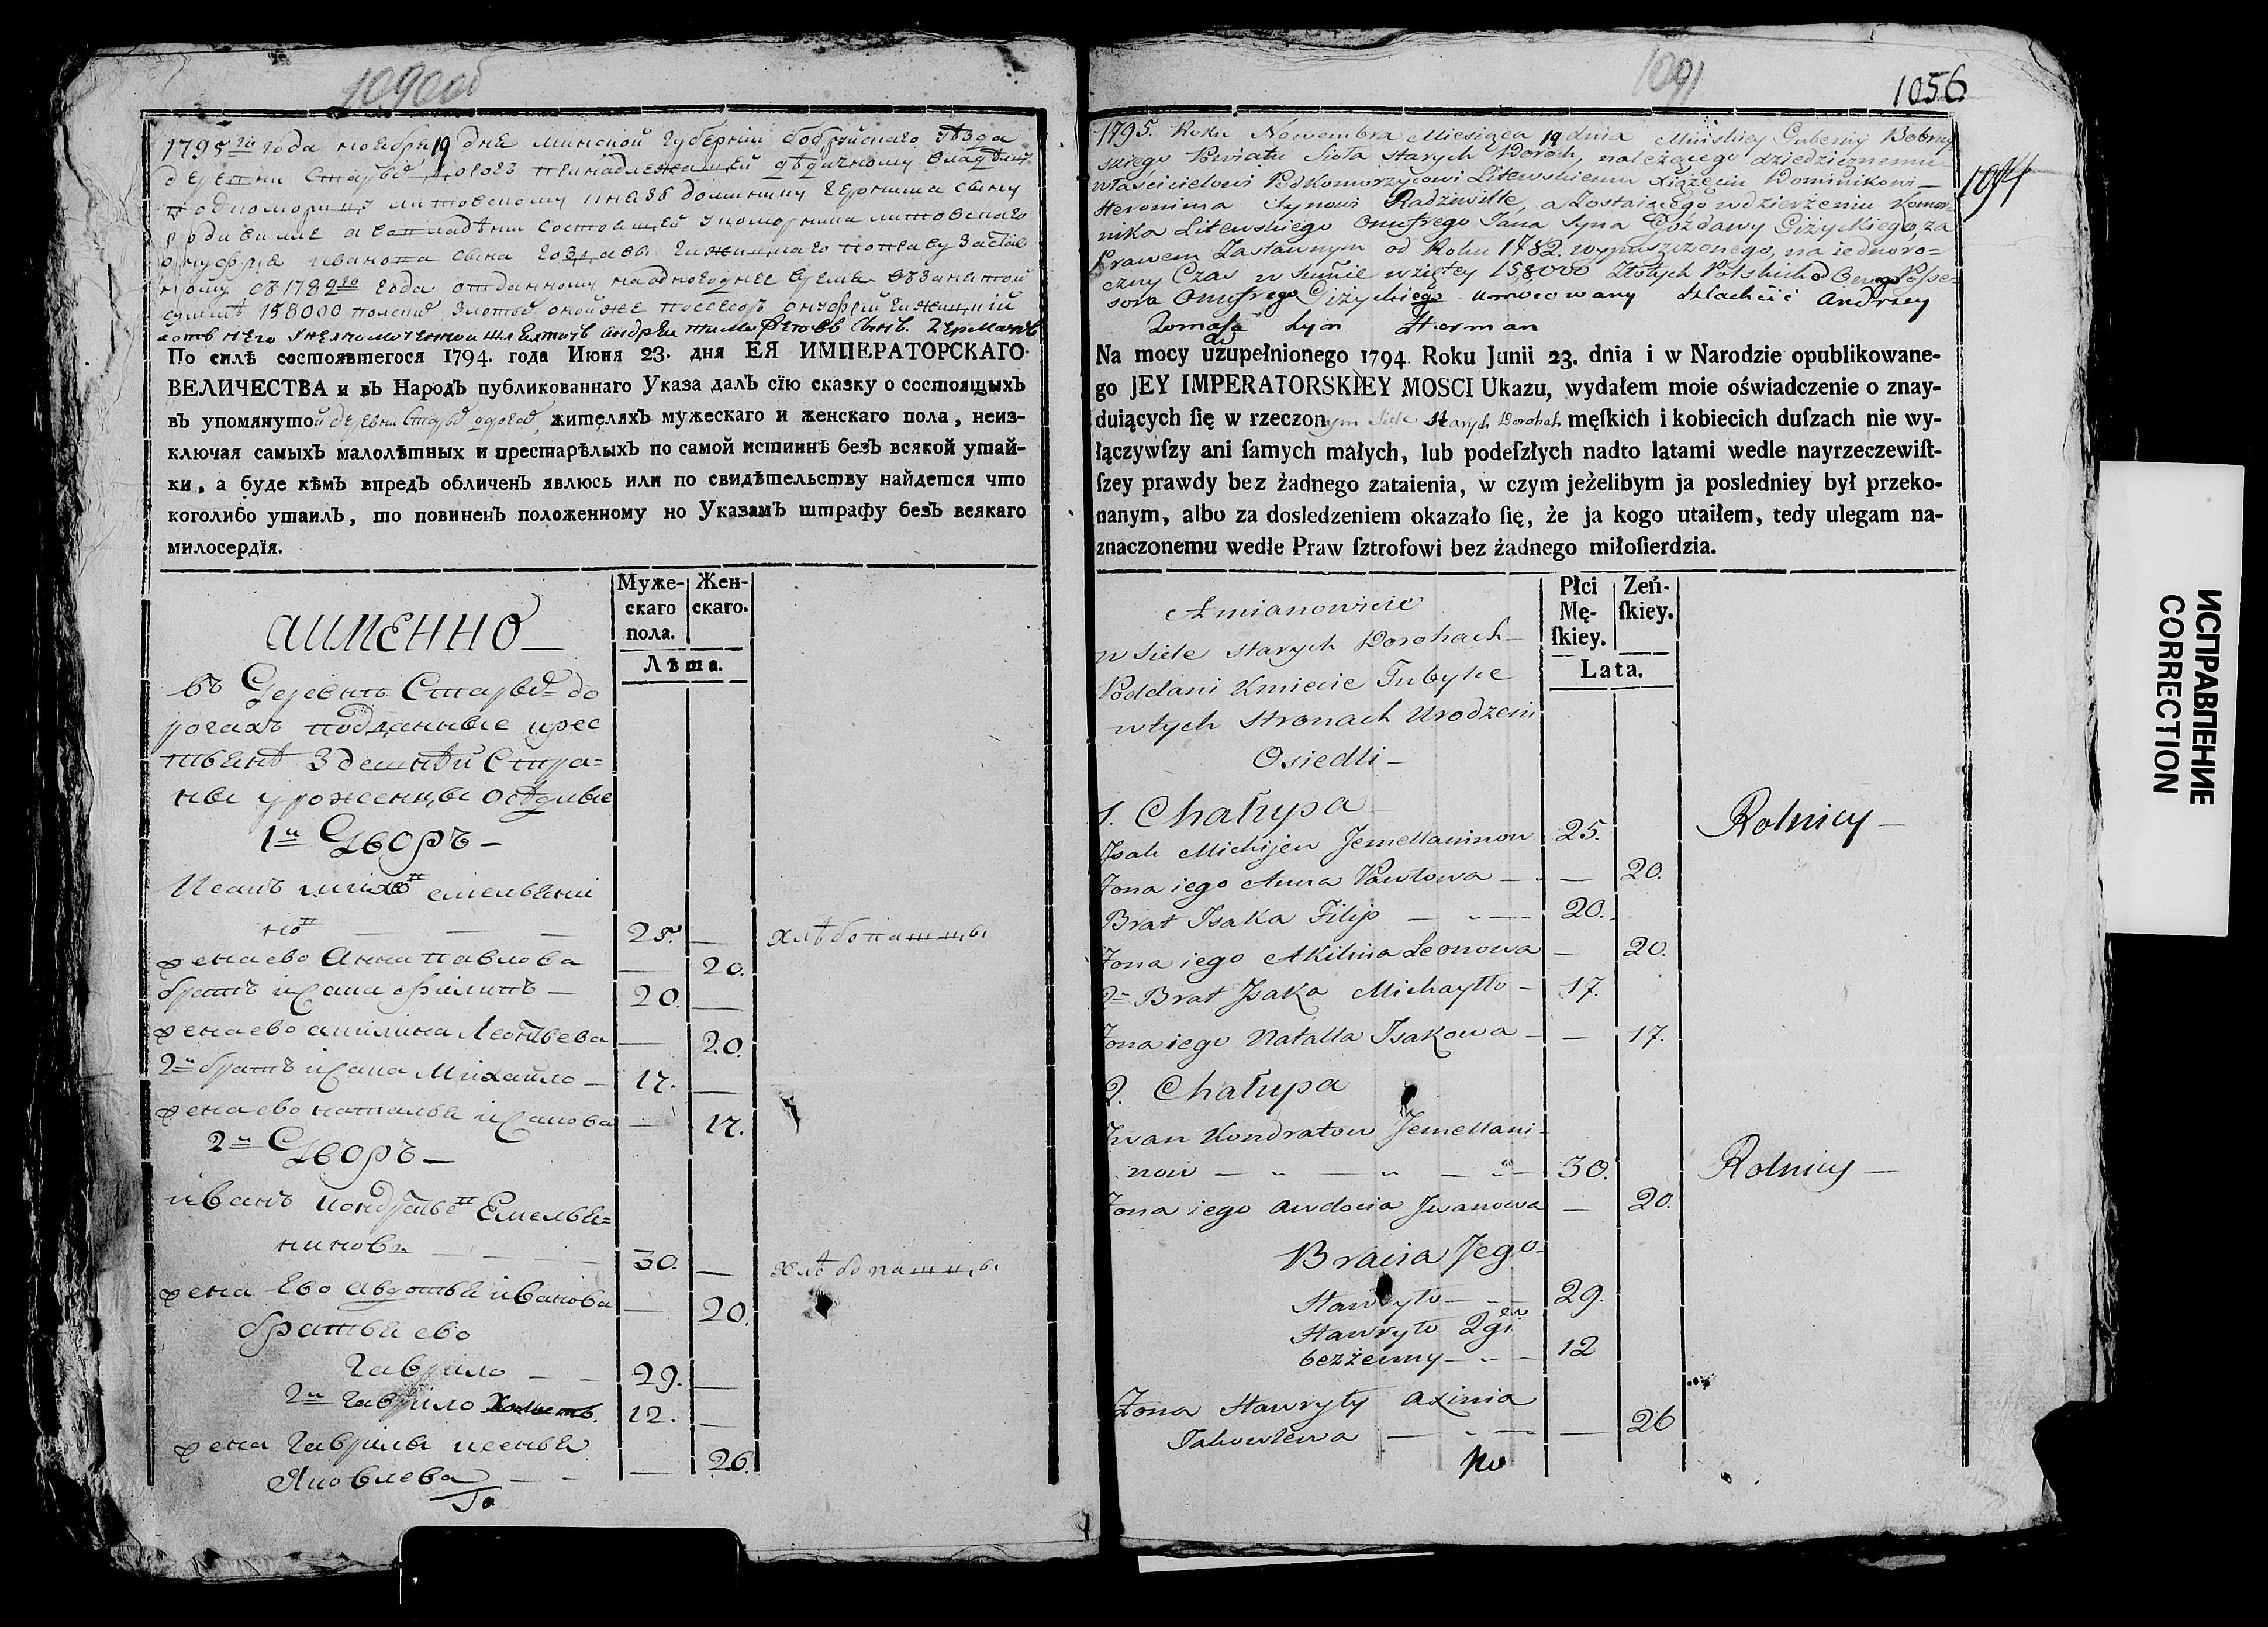 1090об
1795го года ноября 19 дня минской губернии бобруйского уезда
деревни Старых дорог принадлежащей дедичному владельцу
подкоморичу литовскому князю доминику геронима сыну
родивиле а во владении состоящей у коморника литовского
онуфрия ивана сына гоздавы гижицкаго по праву застав
ному с 1782го года отданному на одногоднее время в занятой
сумме 158000 полских злотых онойже посесор онуфрий гижицкий
а от него унелномоченной шляхтич андрей сын Герман
По силѣ состоявшегося 1794. года Июня 23. дня ЕЯ ИМПЕРАТОРСКАГО
ВЕЛИЧЕСТВА и въ Народъ публикованнаго Указа далъ сїю сказку о состоящыхъ
въ упомянутой деревни Старых дорогах, жителяхъ мужескаго и женскаго пола, неиз-
ключая самыхъ малолѣтныхъ и престарѣлыхъ по самой истиннѣ безъ всякой утай-
ки, а буде кѣмъ впредъ обличенъ явлюсь или по свидѣтельству найдется что
коголибо утаилъ, то повиненъ положенному по Указамъ штрафу безъ всякаго
милосердїя.
Муже-
скаго
пола.
Жен-
скаго.
Лѣта.
а именно
въ Деревне Старых до
рогах подданные крес
тьяне здешней Стра=
ны уроженцы оседлые
1й Дворъ
Исакъ михеев емельяни
нов 25. — хлебопашцы
жена ево Анна павлова — 20.
братъ исака филипъ — 20. —
жена ево акилина Леонтьева — 20.
2й братъ исака Михаило — 17. —
жена ево наталья исакова — 17.
2й Дворъ —
иванъ кондратьев Емелья=
нинов 30. — хлебопашцы
жена Ево авдотья иванова — 20.
братья ево
гаврило — 29. —
2й гаврило холост. 12. —
жена гаврилы ксенья
Яковлева — 26.
1091
1056
1795. Roku Nowembra Miesiąca 19 dnia Mińskiey Guberny Bobruy
skiego Powiatu Sioła Starych Doroh, należącego dziedzicznemu
właścicielowi Podkomorzycowi Litewskiemu Xiążęciu Dominikowi —
Heronima Synowi Radziwille, a Zostaiącego w dzierżeniu Komor=
nika Litewskiego Onufrego Jana Syna Gozdawy Giżyckiego, za
Prawem Zastawnym od Roku 1782. wypuszczonego, na iednoro=
czny Czas w Summie wziętey 158000 Złotych Polskich od Onego Posse=
sora Onufrego Giżyckiego umocowany szlachcic Andrzey
Tomasza Syn Herman
Na mocy uzupełnionego 1794. Roku Junii 23. dnia i w Narodzie opublikowane-
go JEY IMPERATORSKIEY MOSCI Ukazu, wydałem moie oświadczenie o znay-
duiących ſię w rzeczonym Siele Starych Dorohach męſkich i kobiecich duſzach nie wy-
łączywſzy ani ſamych małych, lub podeſzłych nadto latami wedle nayrzeczewiſt-
ſzey prawdy bez żadnego zataienia, w czym jeżelibym ja posledniey był przeko-
nanym, albo za dosledzeniem okazało ſię, że ja kogo utaiłem, tedy ulegam na-
znaczonemu wedle Praw ſztrofowi bez żadnego miłoſierdzia.
Płci
Mę-
ſkiey.
Zeń-
ſkiey.
Lata.
A mianowicie
w Siele Starych Dorohach —
Poddani Kmiecie Tubylce
w tych Stronach Urodzeni
Osiedli —
1. Chałupa
Isak Michijew Jemellaninow 25. Rolnicy —
Zona iego Anna Pawłowa — — 20.
Brat Isaka Filip — 20.
Zona iego Akilina Leonowa — 20.
2gi Brat Isaka Michayłło — 17.
Zona iego Natalla Isakowa — — 17.
2. Chałupa
Iwan Kondratow Jemellani-
now — 30. Rolnicy —
Zona iego Awdocia Iwanowa — 20.
Bracia Jego
Hawryło — 29.
Hawryło 2gi
bezżenny — 12
Zona Hawryły Axinia
Jakowlewa — — 26
ИСПРАВЛЕНИЕ
CORRECTION